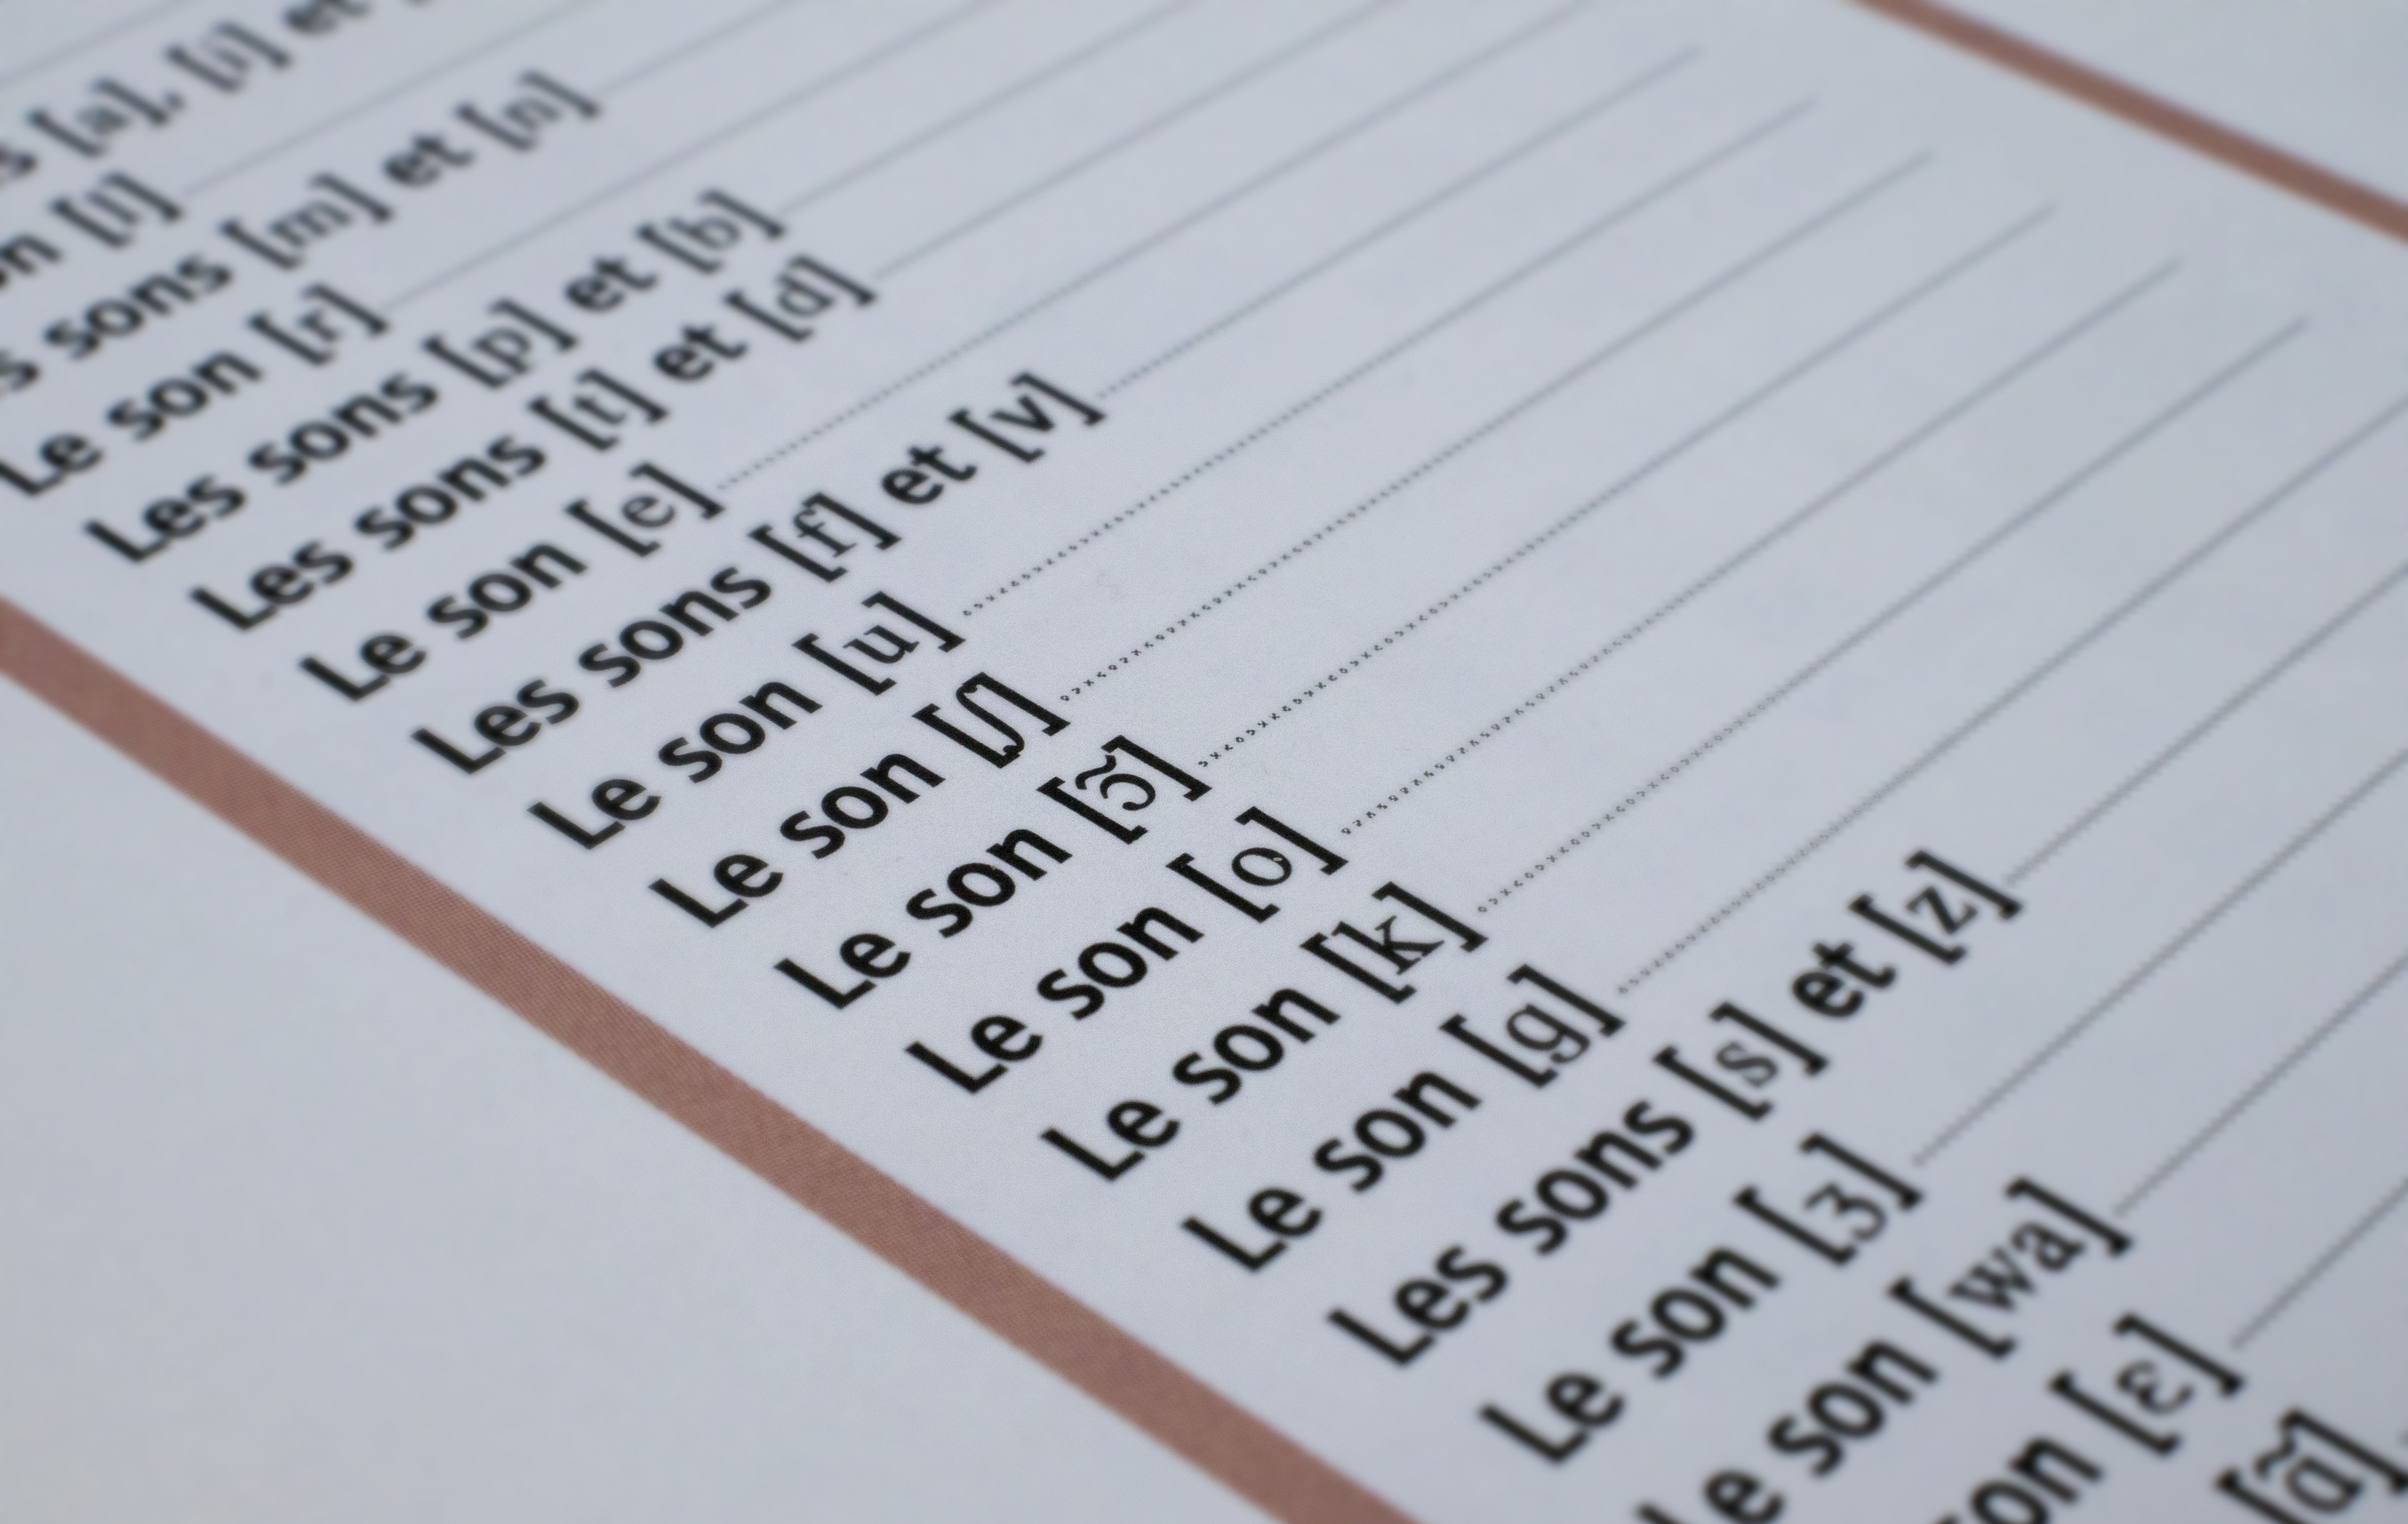 [a], [i] et
[l]
sons [m] et [n]
Le son [r]
Les sons [p] et [b]
Les sons [t] et [d]
Le son [e]
Les sons [f] et [v]
Le son [u]
Le son [ʃ]
Le son [ɔ̃]
Le son [o]
Le son [k]
Le son [g]
Les sons [s] et [z]
Le son [ʒ]
Le son [wa]
son [ɛ]
[ɑ̃]